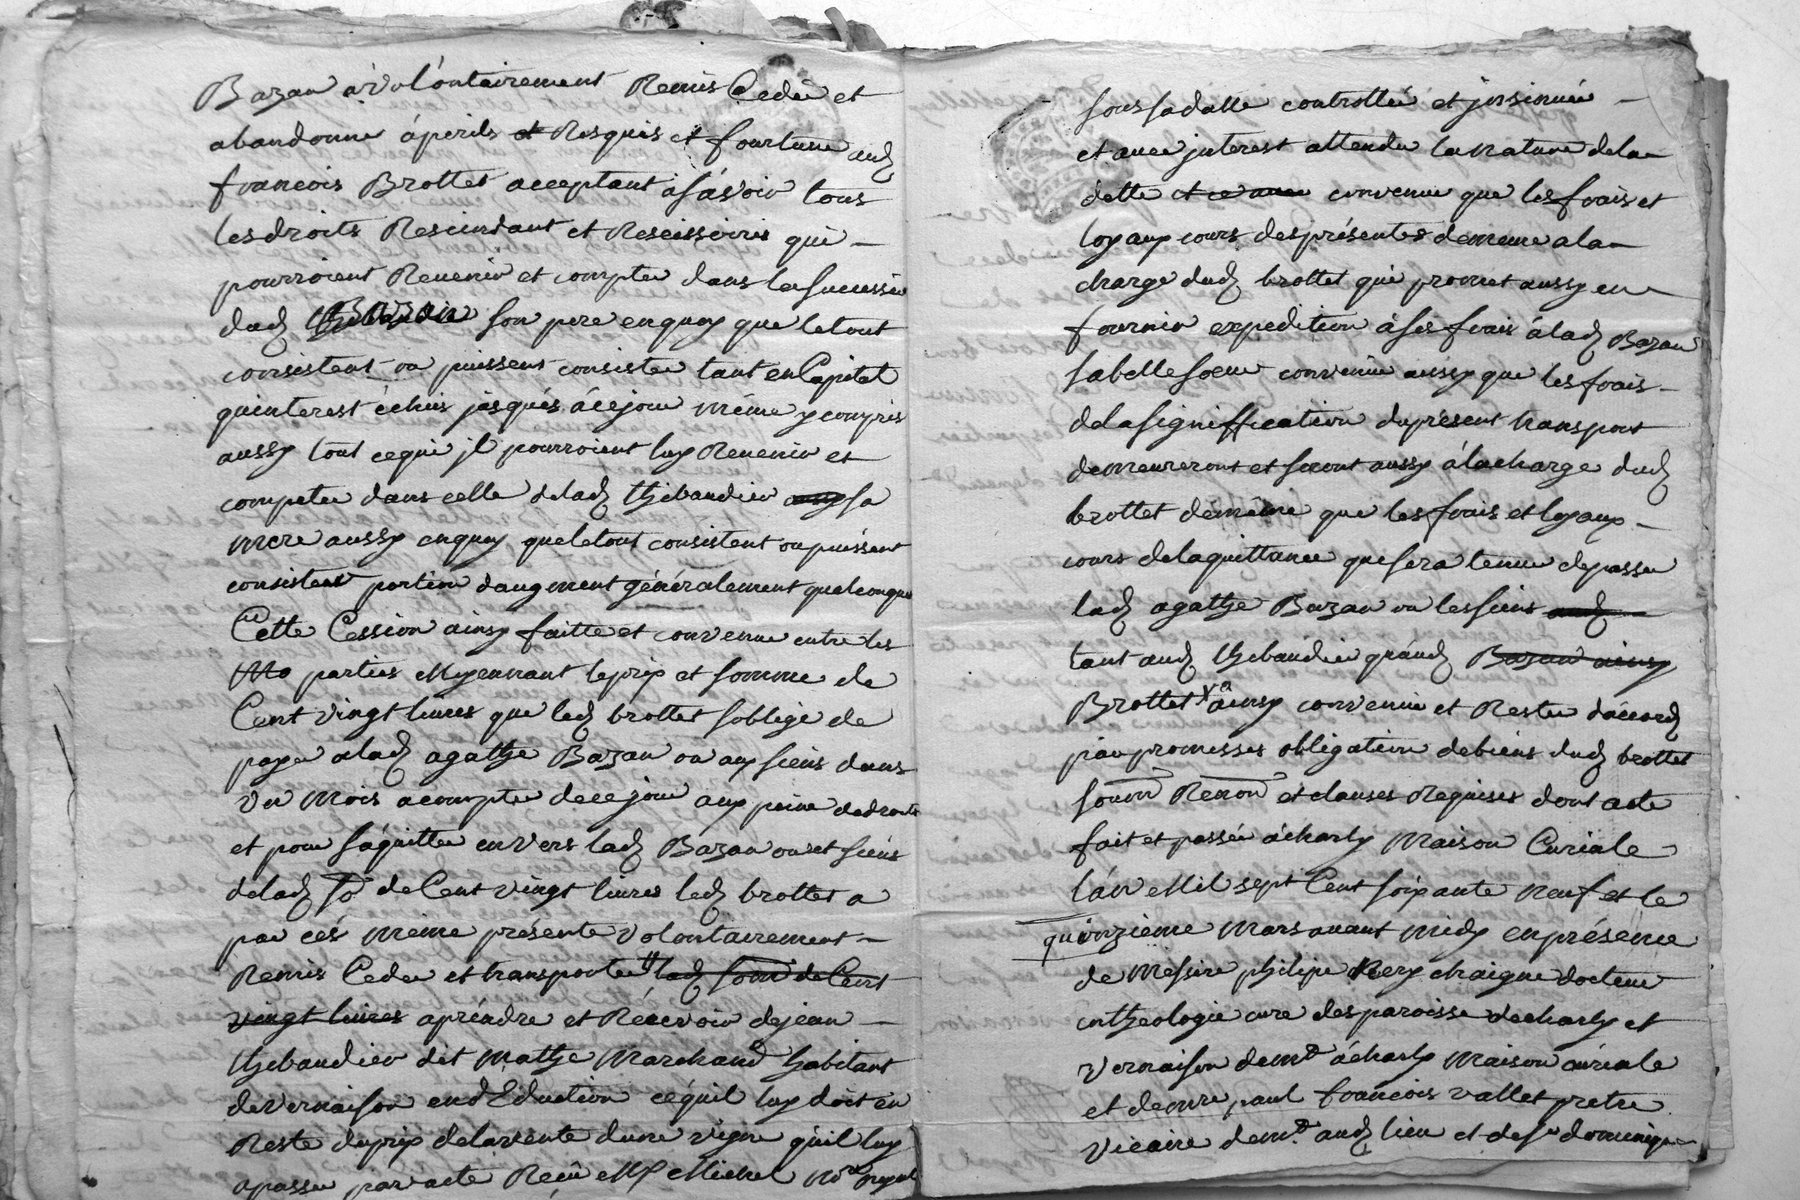 Bazan a volontairement Remis Cedé et
abandonné á perils et Resquis et fourtune aud
francois Brottet acceptant ásávoir tous
les droits Rescindant et Rescissoires qui
pourroient Revenir et compter dans la succession
dud Bazan son pere enquoy que le tout
consistent ou puissent consister tant en Capital
quinterest échus jusqués á ce jour méme y compris
aussy tout ce qui jl pourroient luy Revenir et
competer dans celle delad thebaudier sa
mere aussy enquoy que le tout consistent ou puissent
consister portion daugment généralement quelconque
Cette Cession ainsy faitte et convenue entre les
parties Moyennant le prix et somme de
Cent vingt livres que led brottet soblige de
payer alad agathe Bazan ou aux siens dans
un Mois acompter de ce jour aux peine de droits
et pour sáquitter envers lad Bazan ou et siens
delad so de Cent vingt livres led brottet a
par cés méme présente volontairement
Remis Ceder et transporter lad som de Cent
vingt livres apréndre et Récevoir de jean
thebaudier dit Mathe Marchand habitant
de vernaison en dEduction céquil luy doit en
Reste du prix de la vente dune vigne quil luy
a passer par acte Reçû Me Michel no royal
sous sa datte controllée et jnsinuée
et avec jnterest attendu la nature de la
dette et ce avec convenu que les frais et
loyaux cours des présentes demeure a la
charge dud brottet qui promet aussy en
fournir expedition á ses frais á lad Bazan
sa belle soeur convenu aussy que les frais
de la signiffication du présent transport
demeureront et seront aussy á la charge dud
brottet de même que les frais et loyaux
cours de la quittance que sera tenue de passer
lad agathe Bazan ou les siens aud
tant aud thebaudier quáud Bazan ainsy
Brottet ainsy convenu et Rester dáccord
par promesses obligation de biens dud brottet
soum Renon et clauses Requises dont acte
fait et passée á charly Maison Curiale
lán Mil sept Cent soixante neuf et le
quinzieme Mars avant midy en présence
de Messire philipe Rery chaigne docteur
en theologie cure des paroisse de charly et
vernaison demt á charly Maison curiale
et de mre paul francois vallet pretre
vicaire demt aud lieu et de sr dominique